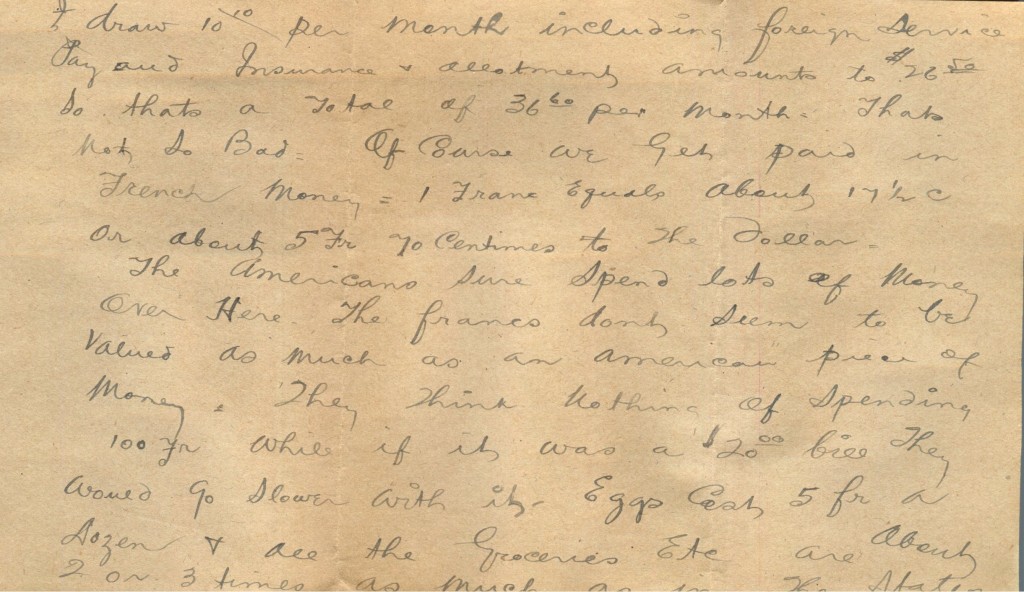 I draw 10 10/ per month including foreign Service
Pay and Insurance & allotment amounts to $26 50
So thats a Total of 36 60 per month. Thats
Not So Bad = Of Course we Get paid in
French Money = 1 Franc Equals About 17 1/2 c
Or about 5 Fr 70 Centimes to The Dollar =
The Americans Sure Spend lots of Money
Over Here. The francs dont Seem to be
Valued as Much as an American piece of
Money = They Think Nothing Of Spending
100 Fr While if it was a $20 00 bill They
Would Go Slower With it - Eggs Cost 5 fr a
Dozen & all the Groceries Etc are About
2 or 3 times as Much as in The States